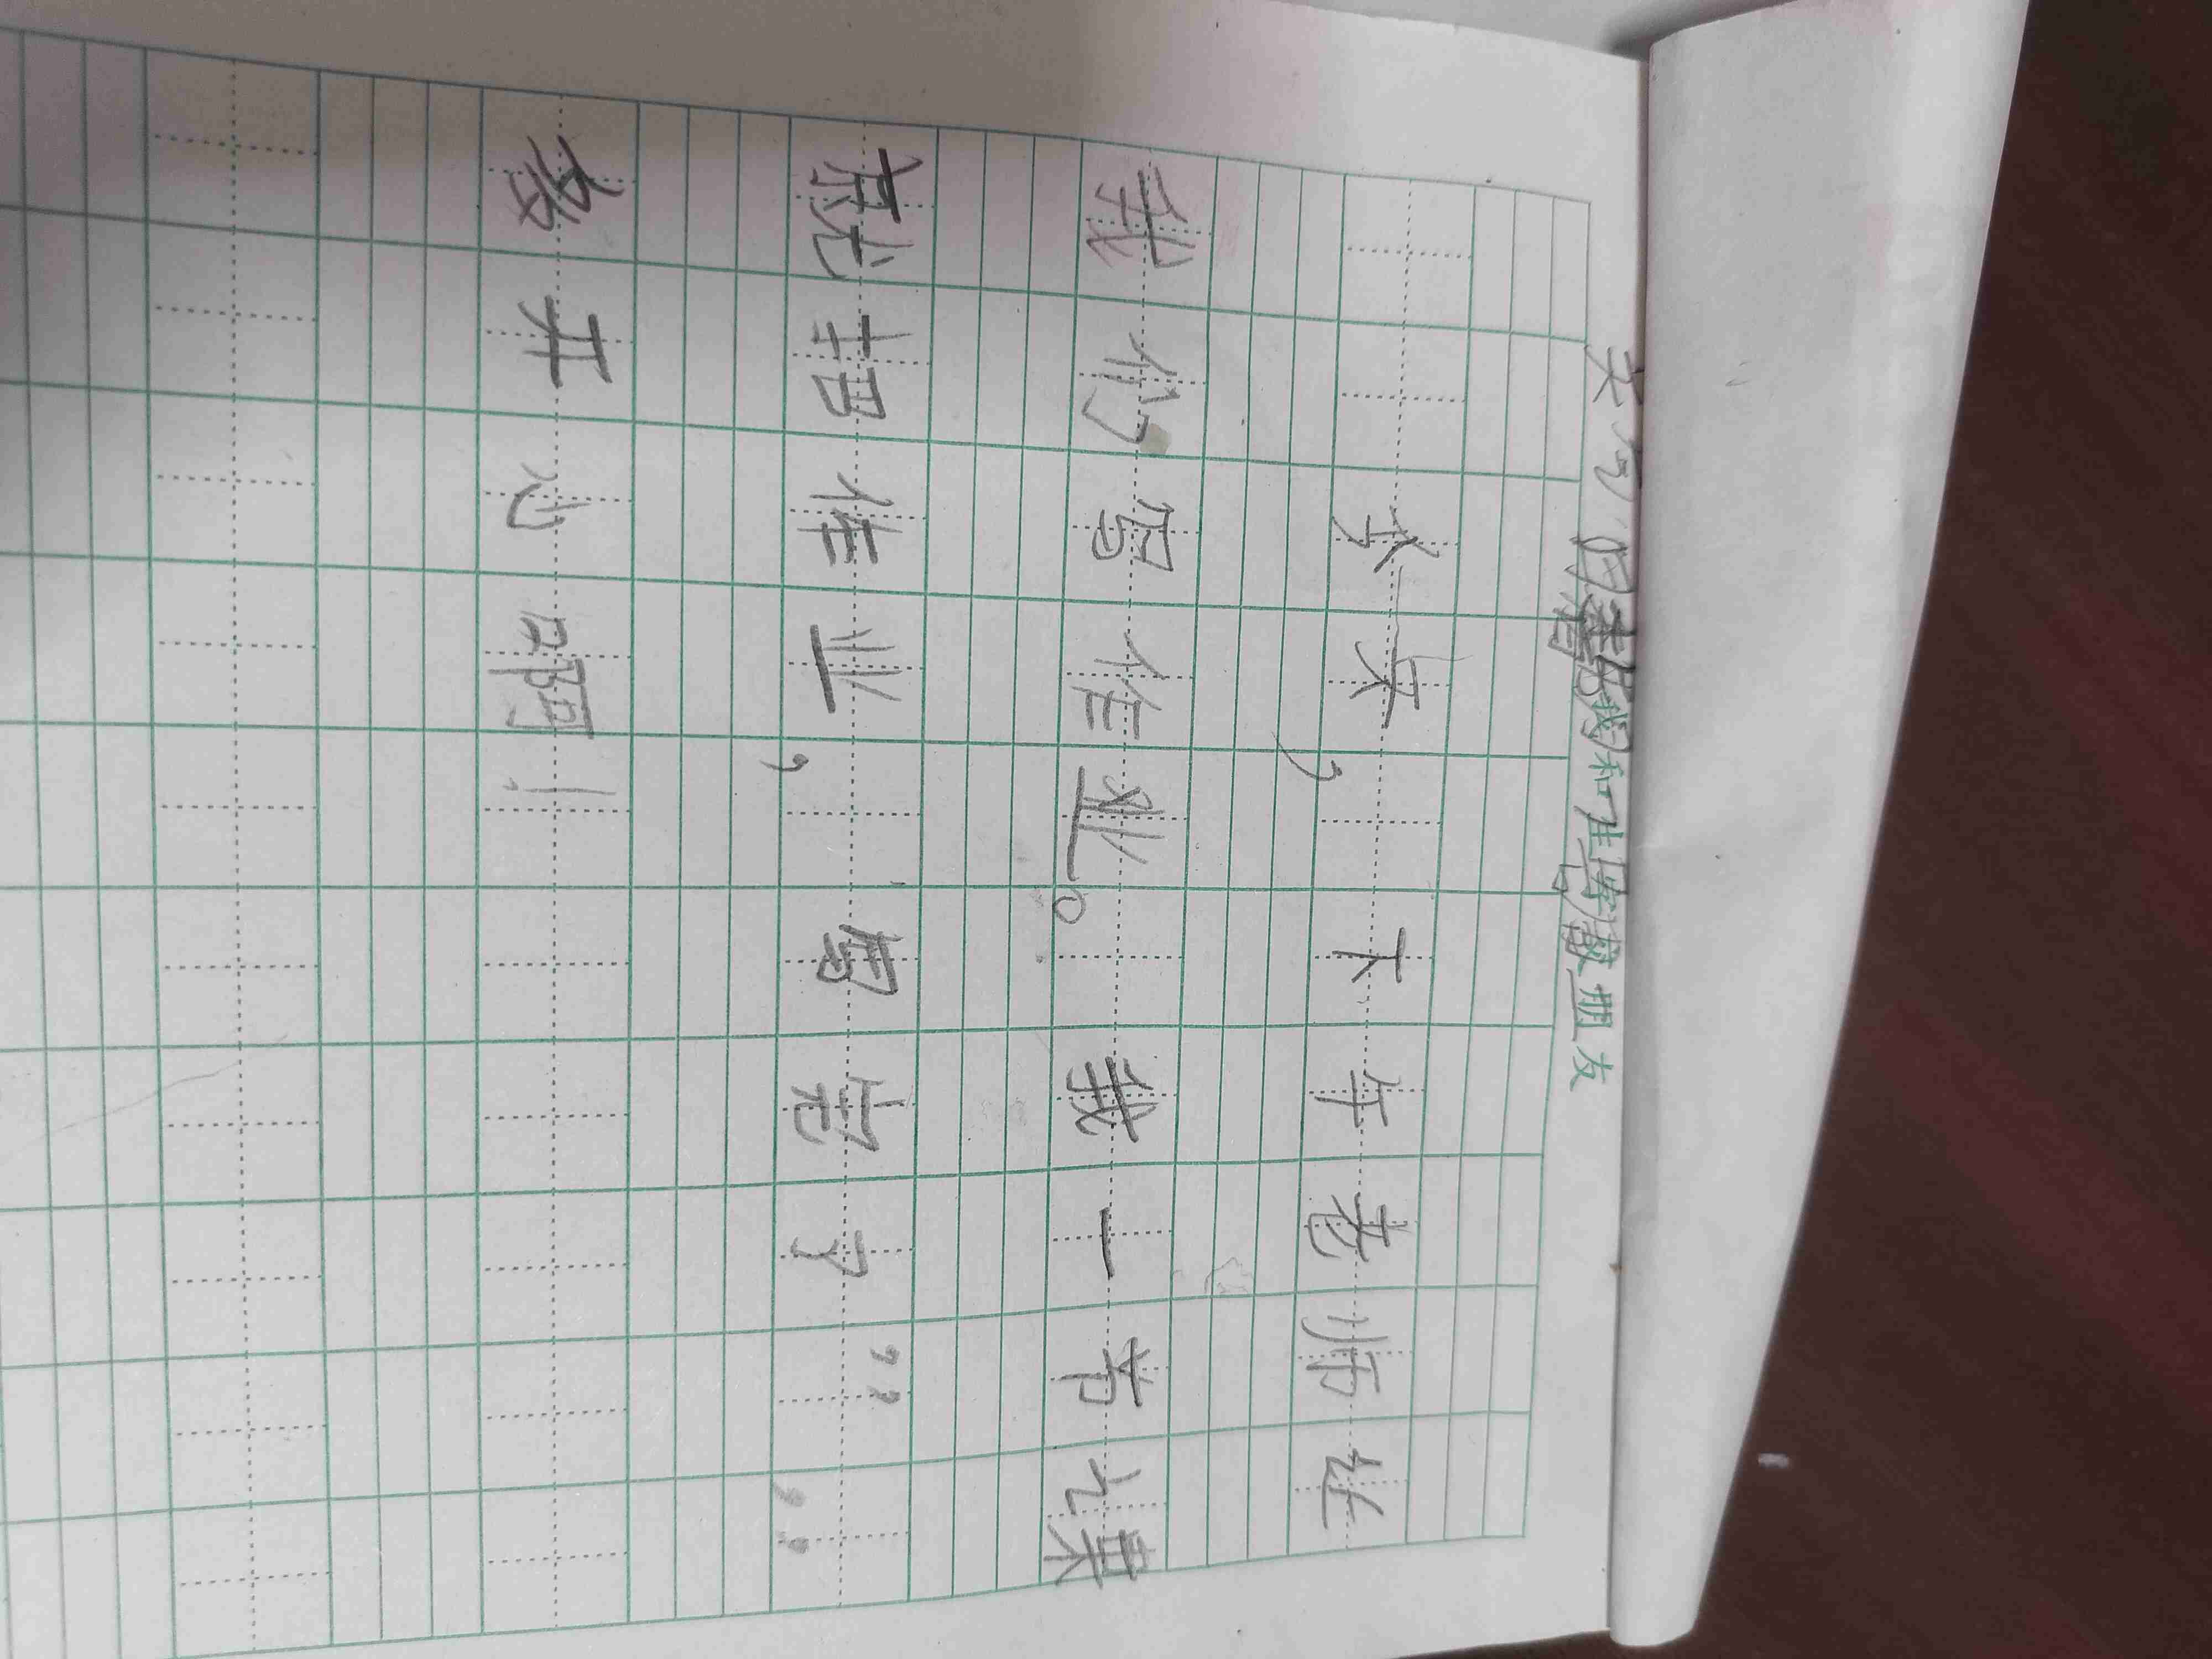 我和 朋友
今天，下午老师让
我们写作业。我一节课
就把作业，写完了”，。
多开心啊！